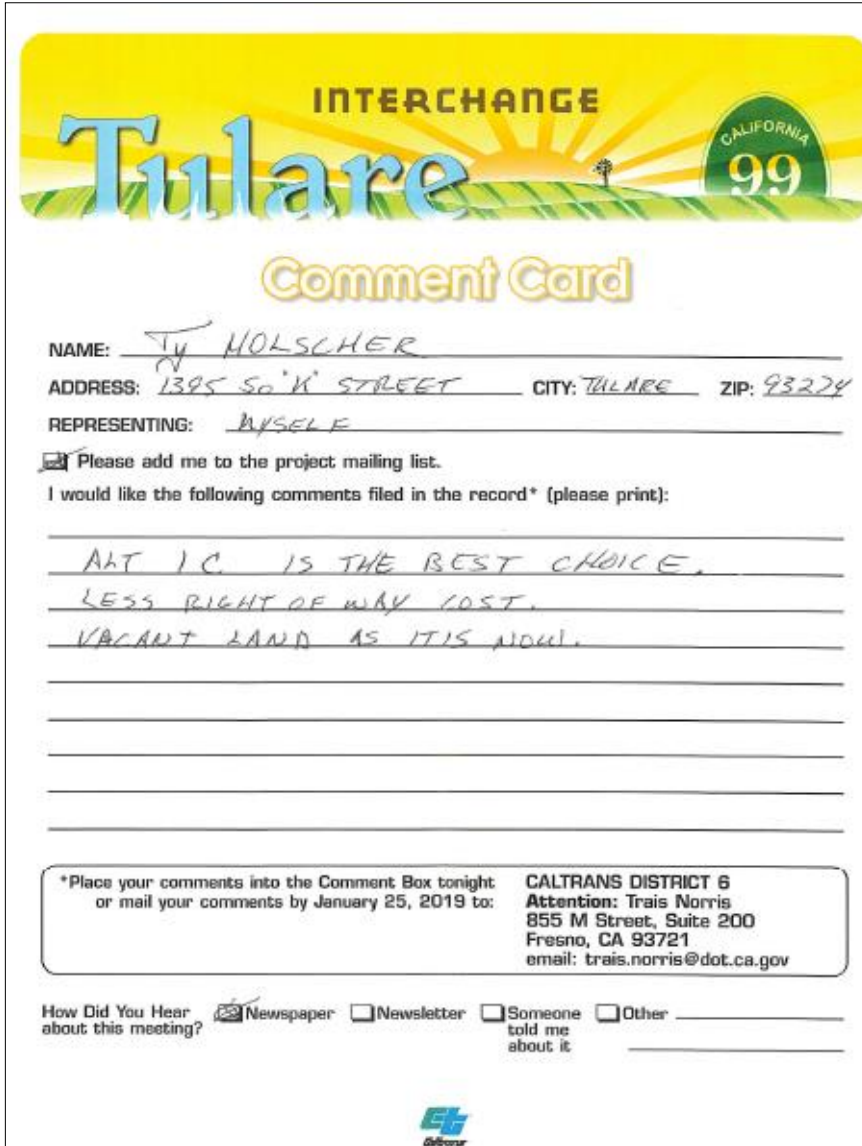 INTERCHANGE
Tulare
CALIFORNIA
99
Comment Card
NAME: Ty HOLSCHER
ADDRESS: 1395 So "K" STREET CITY: TULARE ZIP: 93274
REPRESENTING: MYSELF
Please add me to the project mailing list.
I would like the following comments filed in the record* (please print):
ALT 1 C. IS THE BEST CHOICE.
LESS RIGHT OF WAY COST.
VACANT LAND AS IT IS NOW.
*Place your comments into the Comment Box tonight
or mail your comments by January 25, 2019 to:
CALTRANS DISTRICT 6
Attention: Trais Norris
855 M Street, Suite 200
Fresno, CA 93721
email: trais.norris@dot.ca.gov
How Did You Hear
about this meeting?
Newspaper
Newsletter
Someone
told me
about it
Other
Caltrans